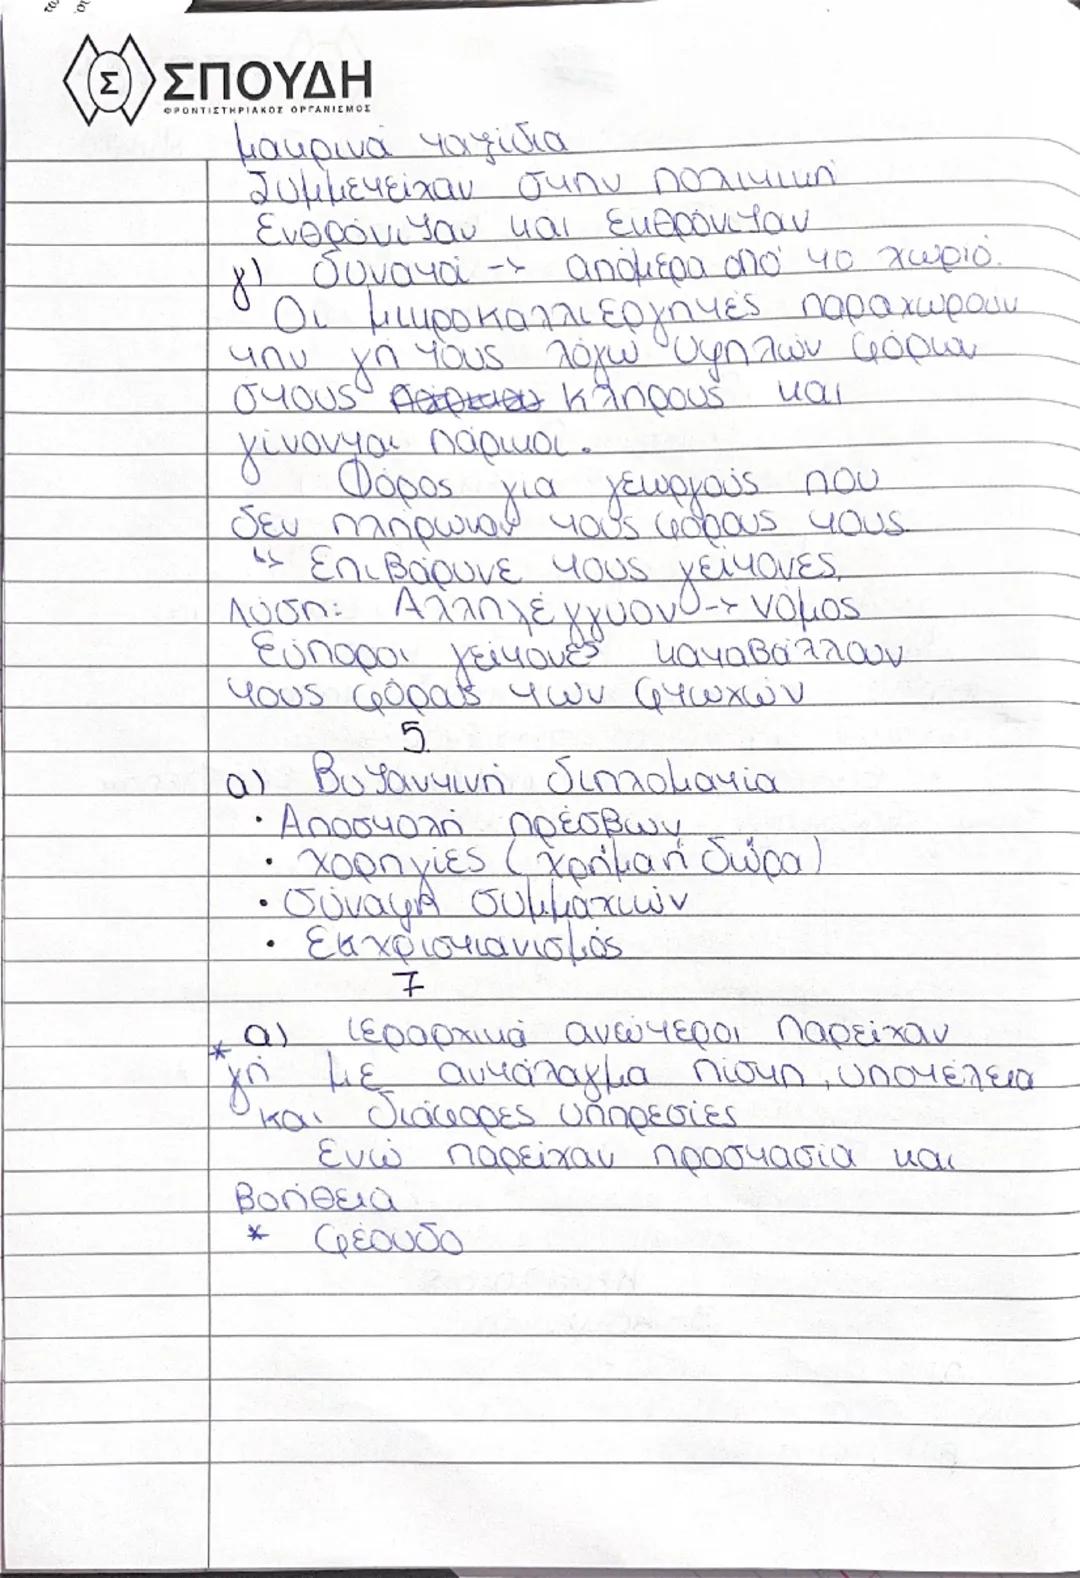 Σ ΣΠΟΥΔΗ
ΦΡΟΝΤΙΣΤΗΡΙΑΚΟΣ ΟΡΓΑΝΙΣΜΟΣ
μακρινά ταξίδια
Συμμετείχαν στην πολιτική
Ενθρόνιζαν και εκθρόνιζαν
γ) δυνατοί -> απόμερα από το χωριό.
Οι μικροκαλλιεργητές παραχωρούν
την γη τους λόγω υψηλών φόρων
στους κλήρους και
γίνονται πάρικοι.
Φόρος για γεωργούς που
δεν πλήρωναν τους φόρους τους
↳ Επιβάρυνε τους γείτονες.
Λύση: Αλληλέγγυον -> νόμος
Εύποροι γείτονες καταβάλλουν
τους φόρους των φτωχών
5.
α) Βυζαντινή διπλοματία
• Αποστολή πρέσβων
• χορηγίες (χρήμα ή δώρα)
• σύναψη συμμαχιών
• Εκχριστιανισμός
7
α) ιεραρχικά ανώτεροι παρείχαν
* γη με αντάλαγμα πίστη, υποτέλεια
και διάφορες υπηρεσίες
Ενώ παρείχαν προστασία και
βοήθεια
* φέουδο